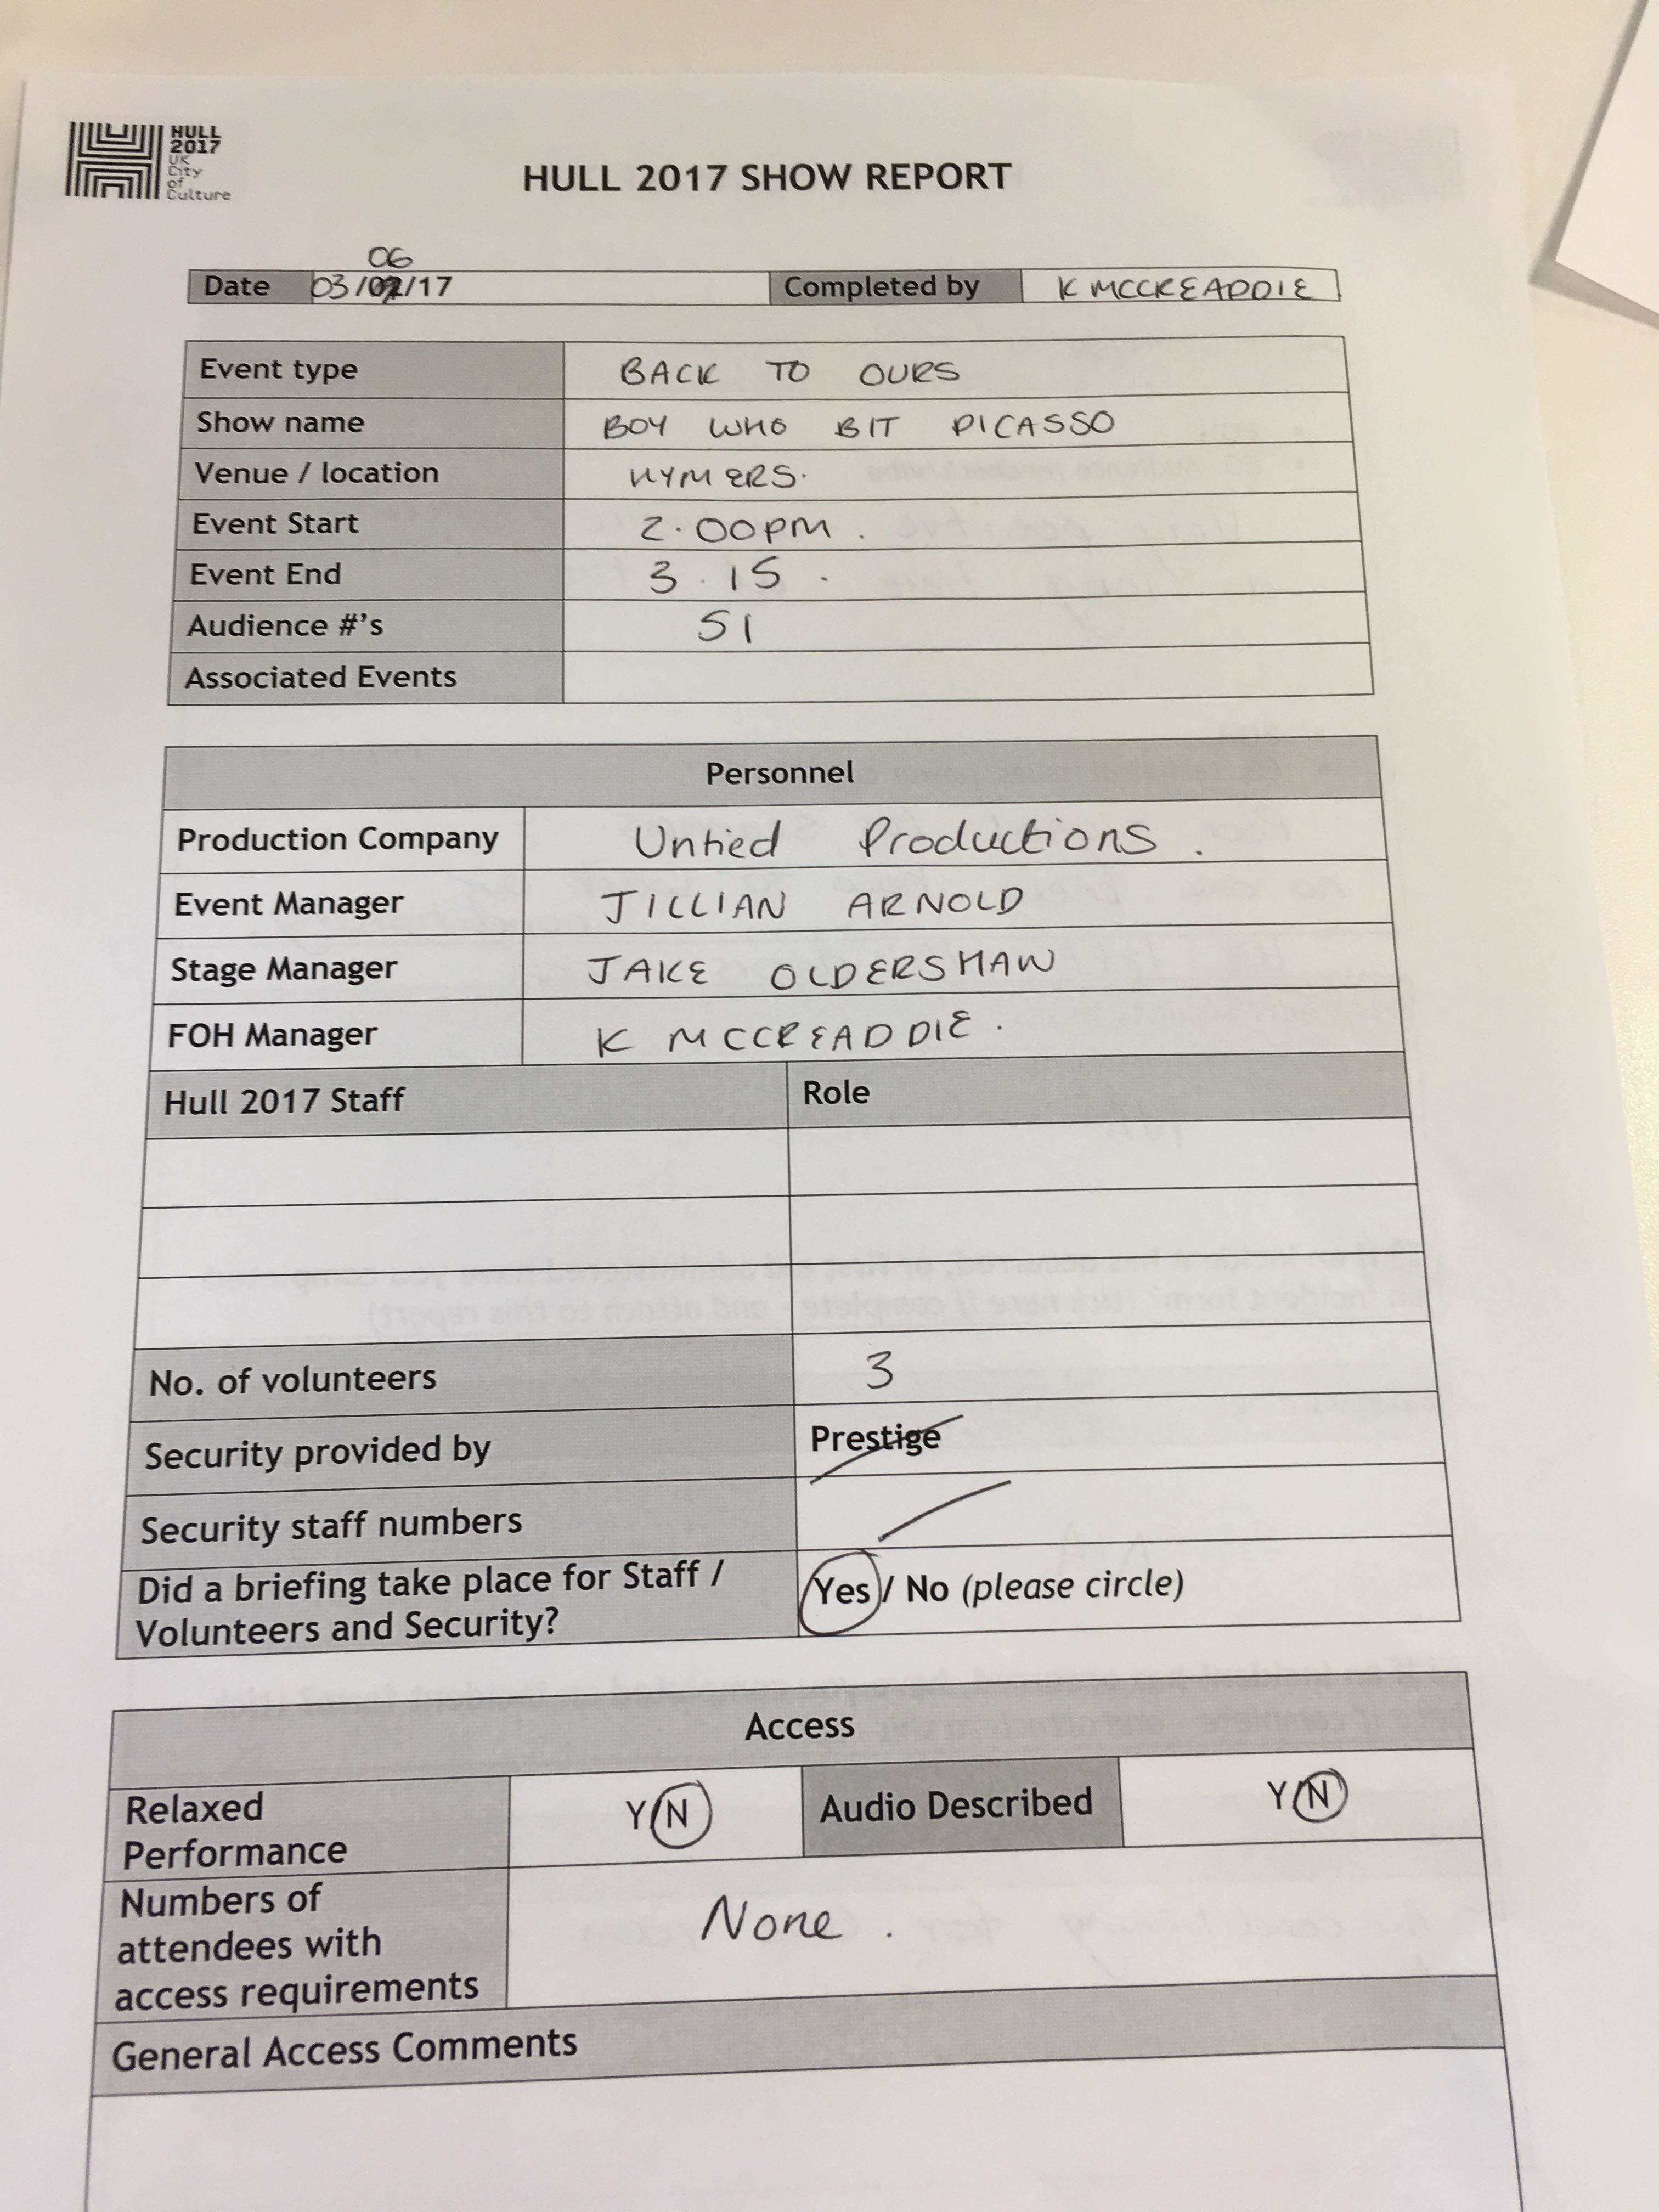 HULL
2017
UK
City
of
Culture
HULL 2017 SHOW REPORT
06
Date 03/02/17 Completed by K MCCREADDIE
Event type BACK TO OURS
Show name BOY WHO BIT PICASSO
Venue / location HYMERS.
Event Start 2.00PM.
Event End 3.15.
Audience #'s 51
Associated Events
Personnel
Production Company Untied Productions.
Event Manager JILLIAN ARNOLD
Stage Manager JAKE OLDERSHAW
FOH Manager K MCCREADDIE.
Hull 2017 Staff Role
No. of volunteers 3
Security provided by Prestige
Security staff numbers
Did a briefing take place for Staff /
Volunteers and Security? Yes / No (please circle)
Access
Relaxed
Performance Y/N Audio Described Y/N
Numbers of
attendees with
access requirements None.
General Access Comments